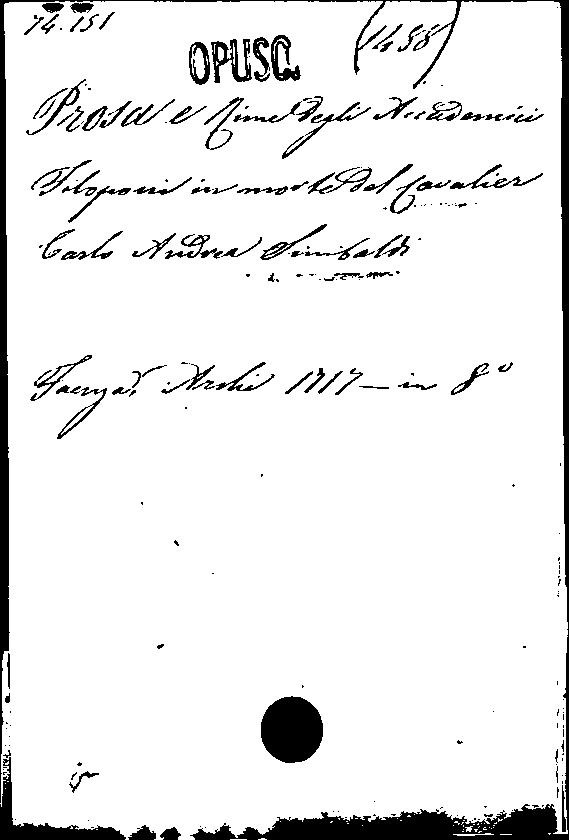 74.151
OPUSC.
(1458)
Prosa e Rime degli Accademici
Filoponi in morte del Cavalier
Carlo Andrea Sinibaldi
Faenza, Archi 1717 — in 8º